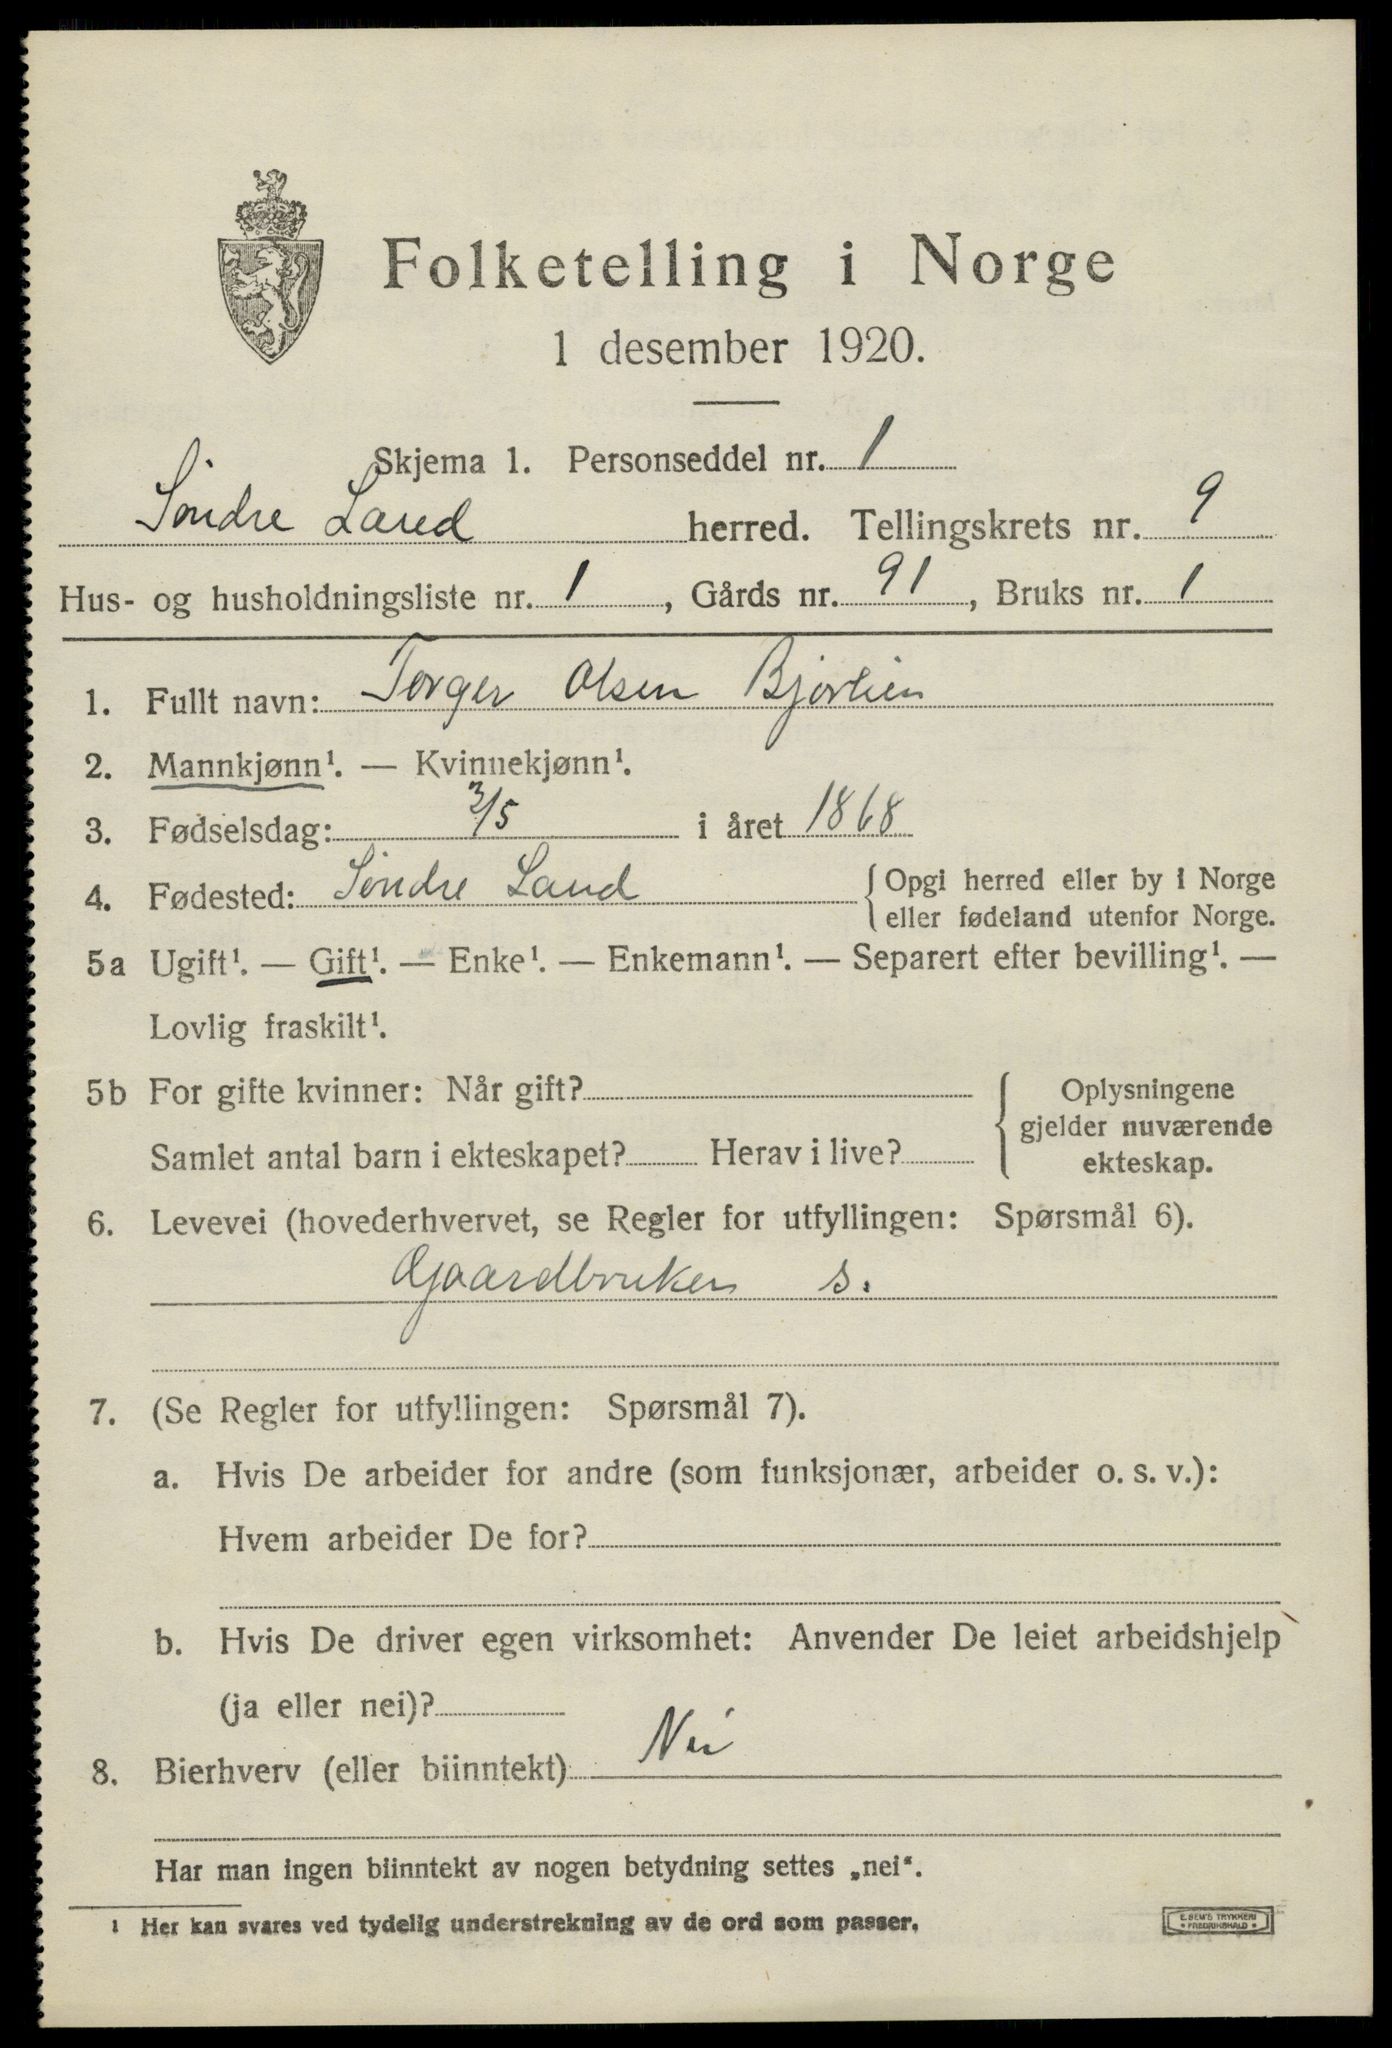 Folketelling i Norge
1 desember 1920.
Skjema 1. Personseddel nr. 1
Söndre Land herred. Tellingskrets nr. 9
Hus- og husholdningsliste nr. 1, Gårds nr. 91, Bruks nr. 1
1. Fullt navn: Torger Olsen Bjørlien
2. Mannkjønn¹. — Kvinnekjønn¹.
3. Fødselsdag: 3/5 i året 1868
4. Fødested: Söndre Land { Opgi herred eller by i Norge
eller fødeland utenfor Norge.
5a Ugift¹. — Gift¹. — Enke¹. — Enkemann¹. — Separert efter bevilling¹. —
Lovlig fraskilt¹.
5b For gifte kvinner: Når gift? { Oplysningene
gjelder nuværende
Samlet antal barn i ekteskapet? Herav i live? ekteskap.
6. Levevei (hovederhvervet, se Regler for utfyllingen: Spørsmål 6).
Gaardbruker s.
7. (Se Regler for utfyllingen: Spørsmål 7).
a. Hvis De arbeider for andre (som funksjonær, arbeider o. s. v.):
Hvem arbeider De for?
b. Hvis De driver egen virksomhet: Anvender De leiet arbeidshjelp
(ja eller nei)?
8. Bierhverv (eller biinntekt) Nei
Har man ingen biinntekt av nogen betydning settes „nei“.
¹ Her kan svares ved tydelig understrekning av de ord som passer.
E. SEM'S TRYKKERI
• FREDRIKSHALD •